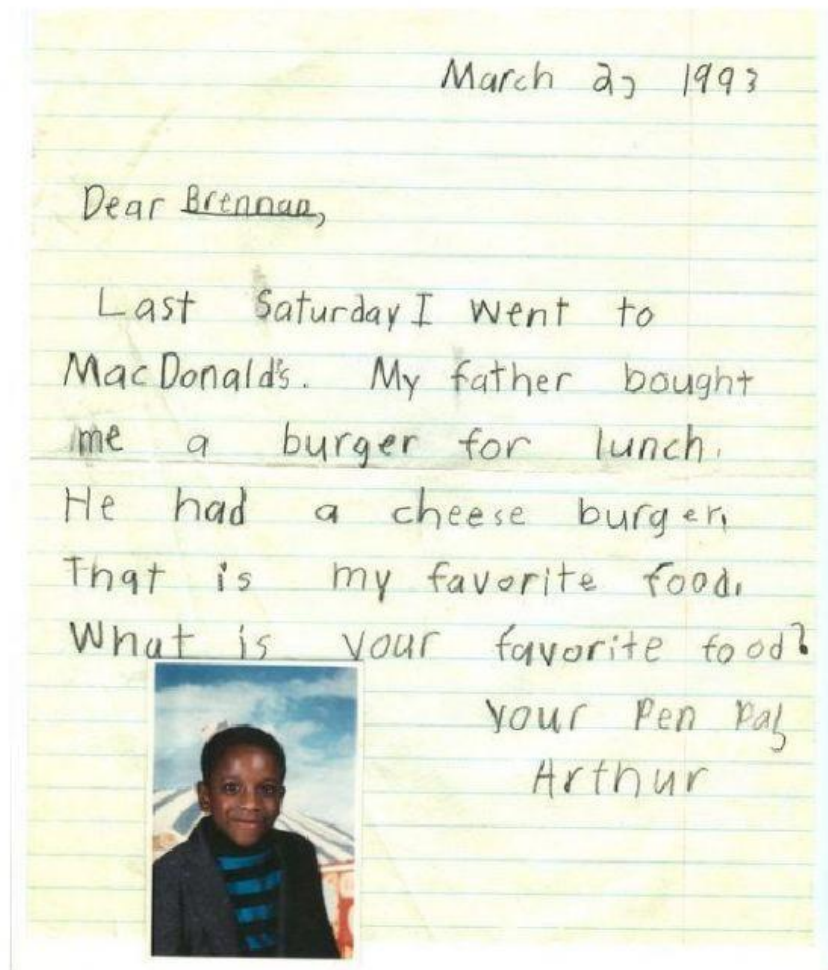 March 2, 1993
Dear Brennan,
Last Saturday I went to
MacDonald's. My father bought
me a burger for lunch.
He had a cheese burger,
That is my favorite food.
What is your favorite food?
Your Pen Pal,
Arthur